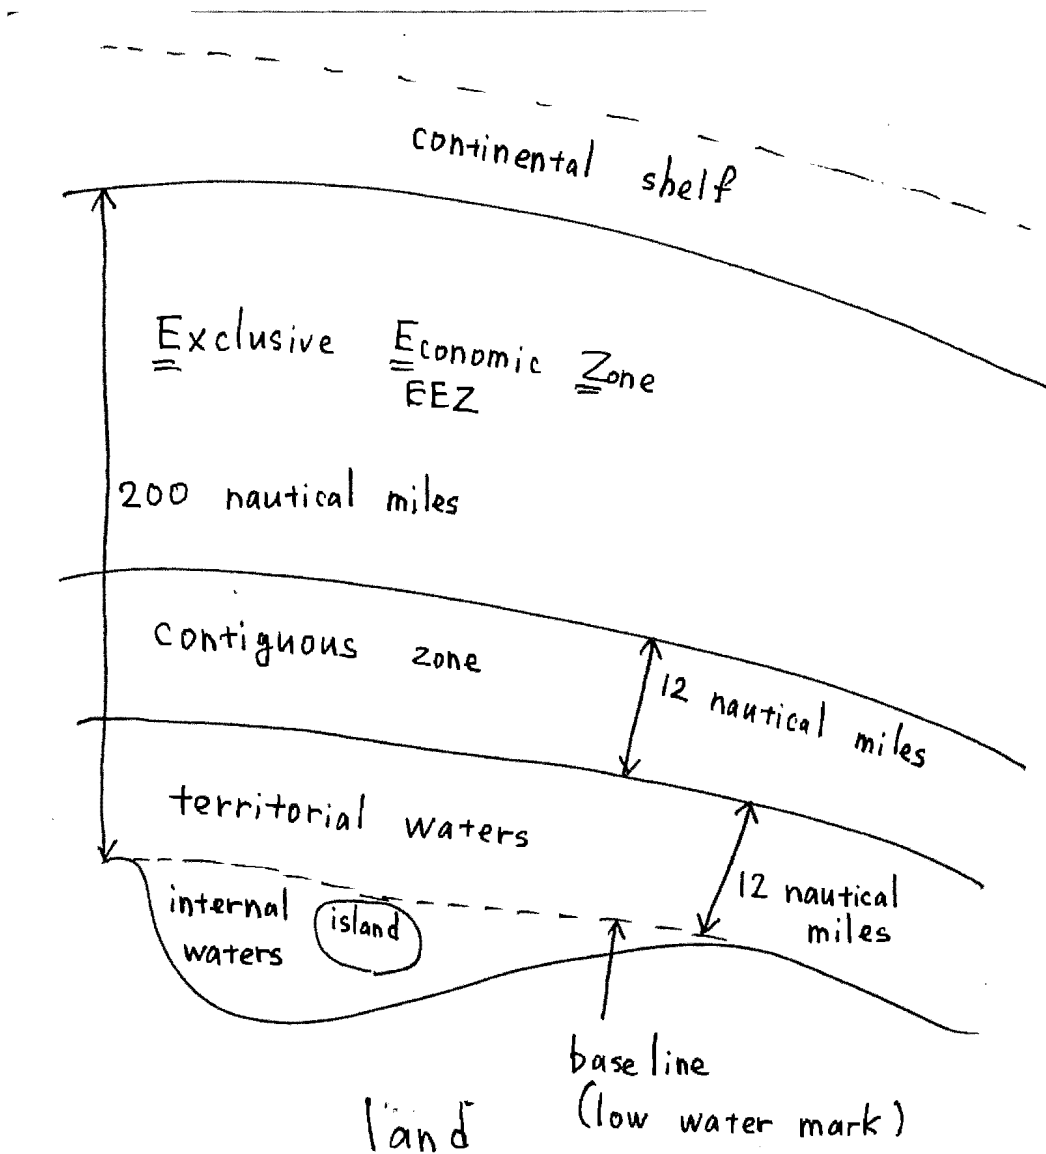 continental shelf
Exclusive Economic Zone
EEZ
200 nautical miles
contiguous zone
12 nautical miles
territorial waters
12 nautical
miles
internal
waters
island
base line
(low water mark)
land